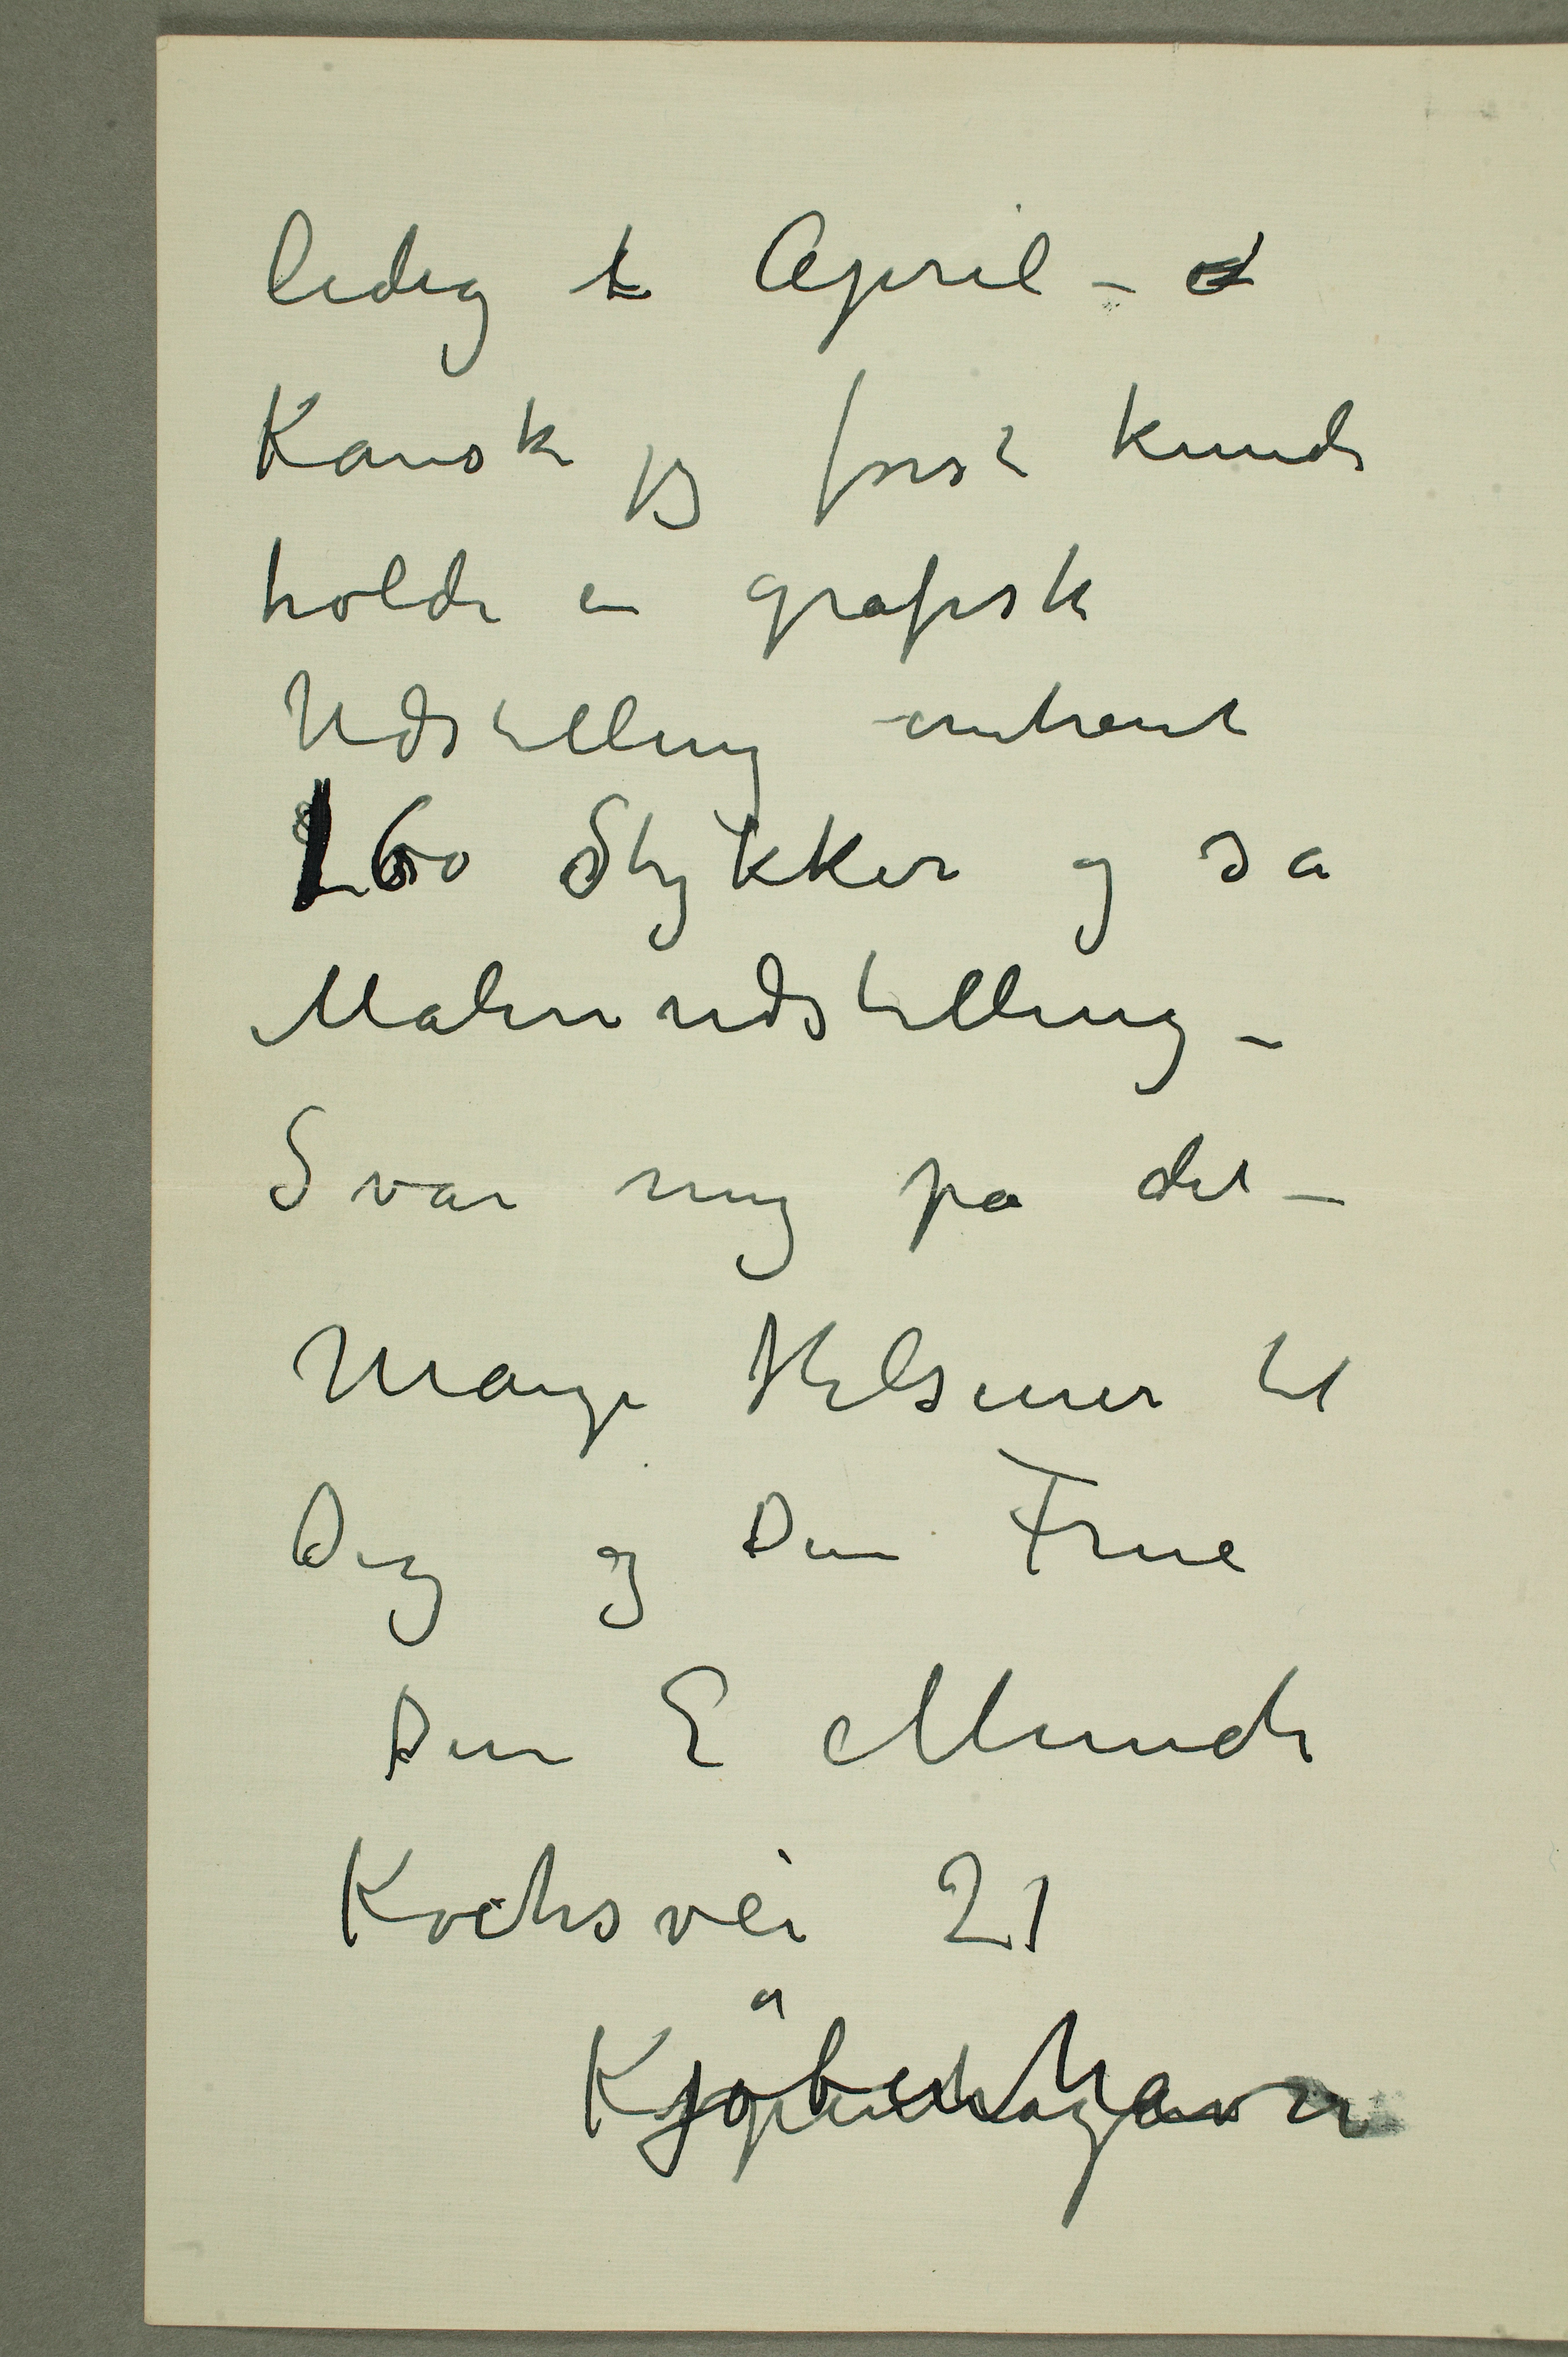 ledig t April –
Kanske jeg først kunde
holde en grafisk
Udstilling omtrent
160 Stykker og så
Maleriudstilling –
Svar mig på det –
Mange Hilsener til
Dig og Din Frue
Din E Munch
Kochsvei 21
Kjøbenhavn